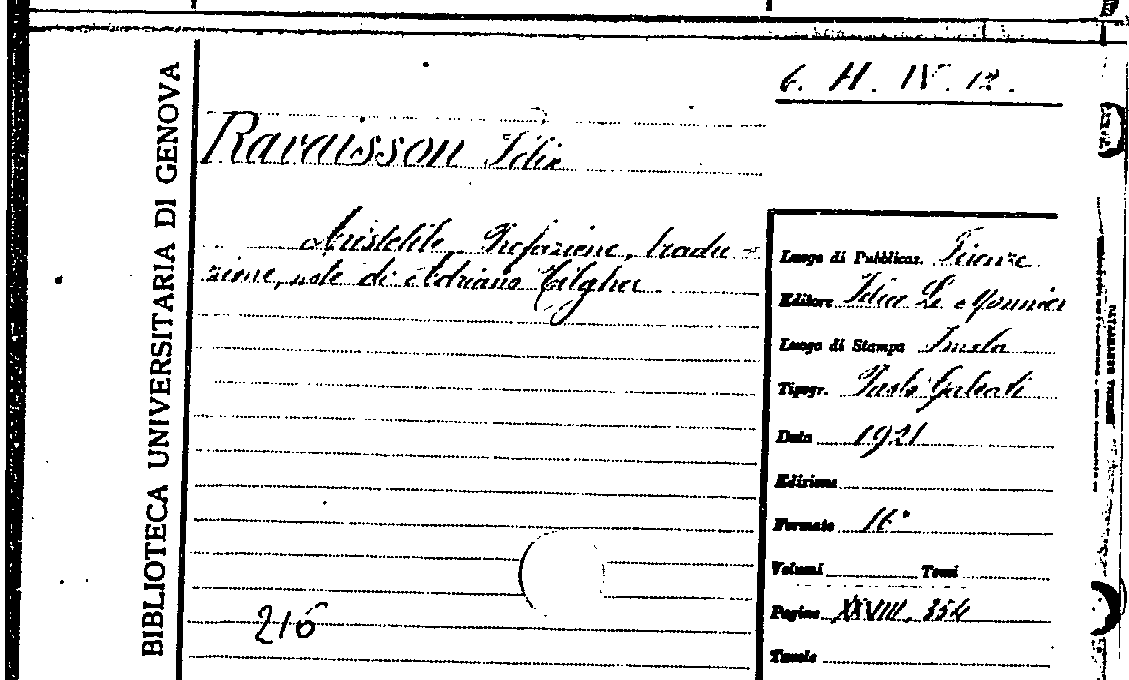 BIBLIOTECA UNIVERSITARIA DI GENOVA
6. H. IV. 12.
Ravaisson Félix
Aristotele. Prefazione, tradu=
zione, note di Adriano Tilgher
Luogo di Pubblicaz. Firenze
Editore Felice Le Monnier
Luogo di Stampa Imola
Tipogr. Paolo Galeati
Data 1921
Edizione
Formato 16°
Volumi Tomi
Pagine XXVIII, 354
Tavole
216